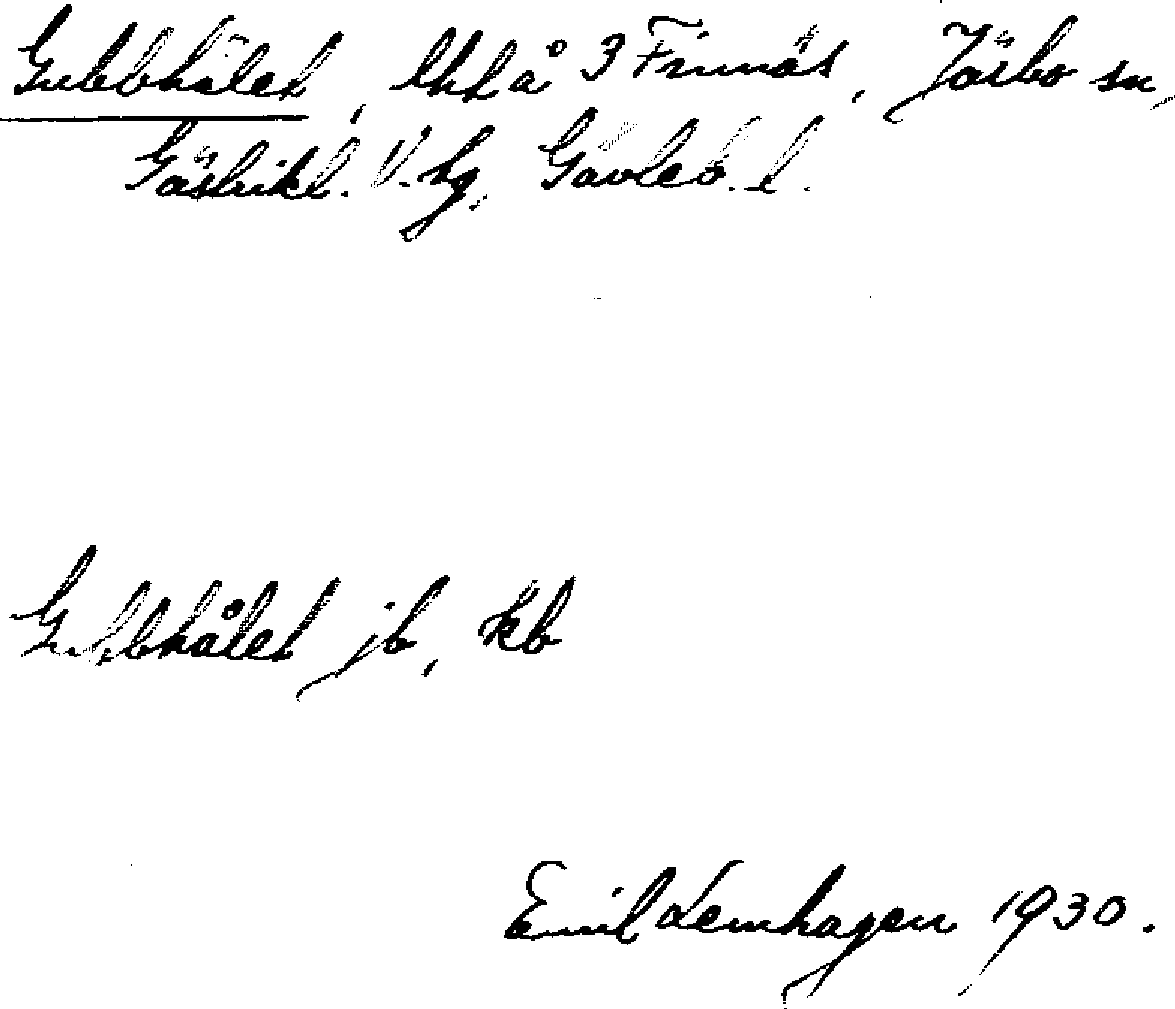 Gubbhålet, lht å 3 Finnäs, Järbo sn,
Gästrikl. V. hg. Gävleb. l.
Gubbhålet jb, kb
Emil Lemhagen 1930.